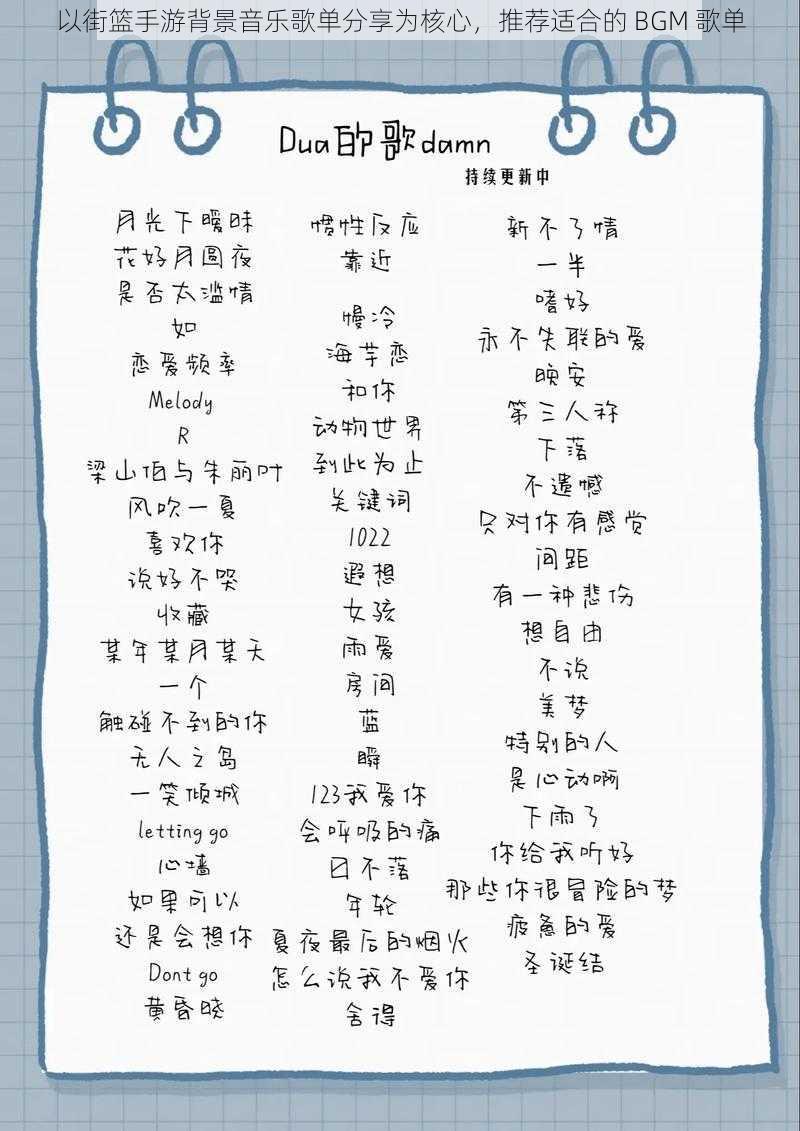 以街篮手游背景音乐歌单分享为核心，推荐适合的 BGM 歌单
Dua的歌damn
持续更新中
月光下暧昧
花好月圆夜
是否太滥情
如
恋爱频率
Melody
R
梁山伯与朱丽叶
风吹一夏
喜欢你
说好不哭
收藏
某年某月某天
一个
触碰不到的你
无人之岛
一笑倾城
letting go
心墙
如果可以
还是会想你
Dont go
黄昏晓
惯性反应
靠近
慢冷
海芋恋
和你
动物世界
到此为止
关键词
1022
遐想
女孩
雨爱
房间
蓝
瞬
123我爱你
会呼吸的痛
日不落
年轮
夏夜最后的烟火
怎么说我不爱你
舍得
新不了情
一半
嗜好
永不失联的爱
晚安
第三人称
下落
不遗憾
只对你有感觉
间距
有一种悲伤
想自由
不说
美梦
特别的人
是心动啊
下雨了
你给我听好
那些你很冒险的梦
疲惫的爱
圣诞结